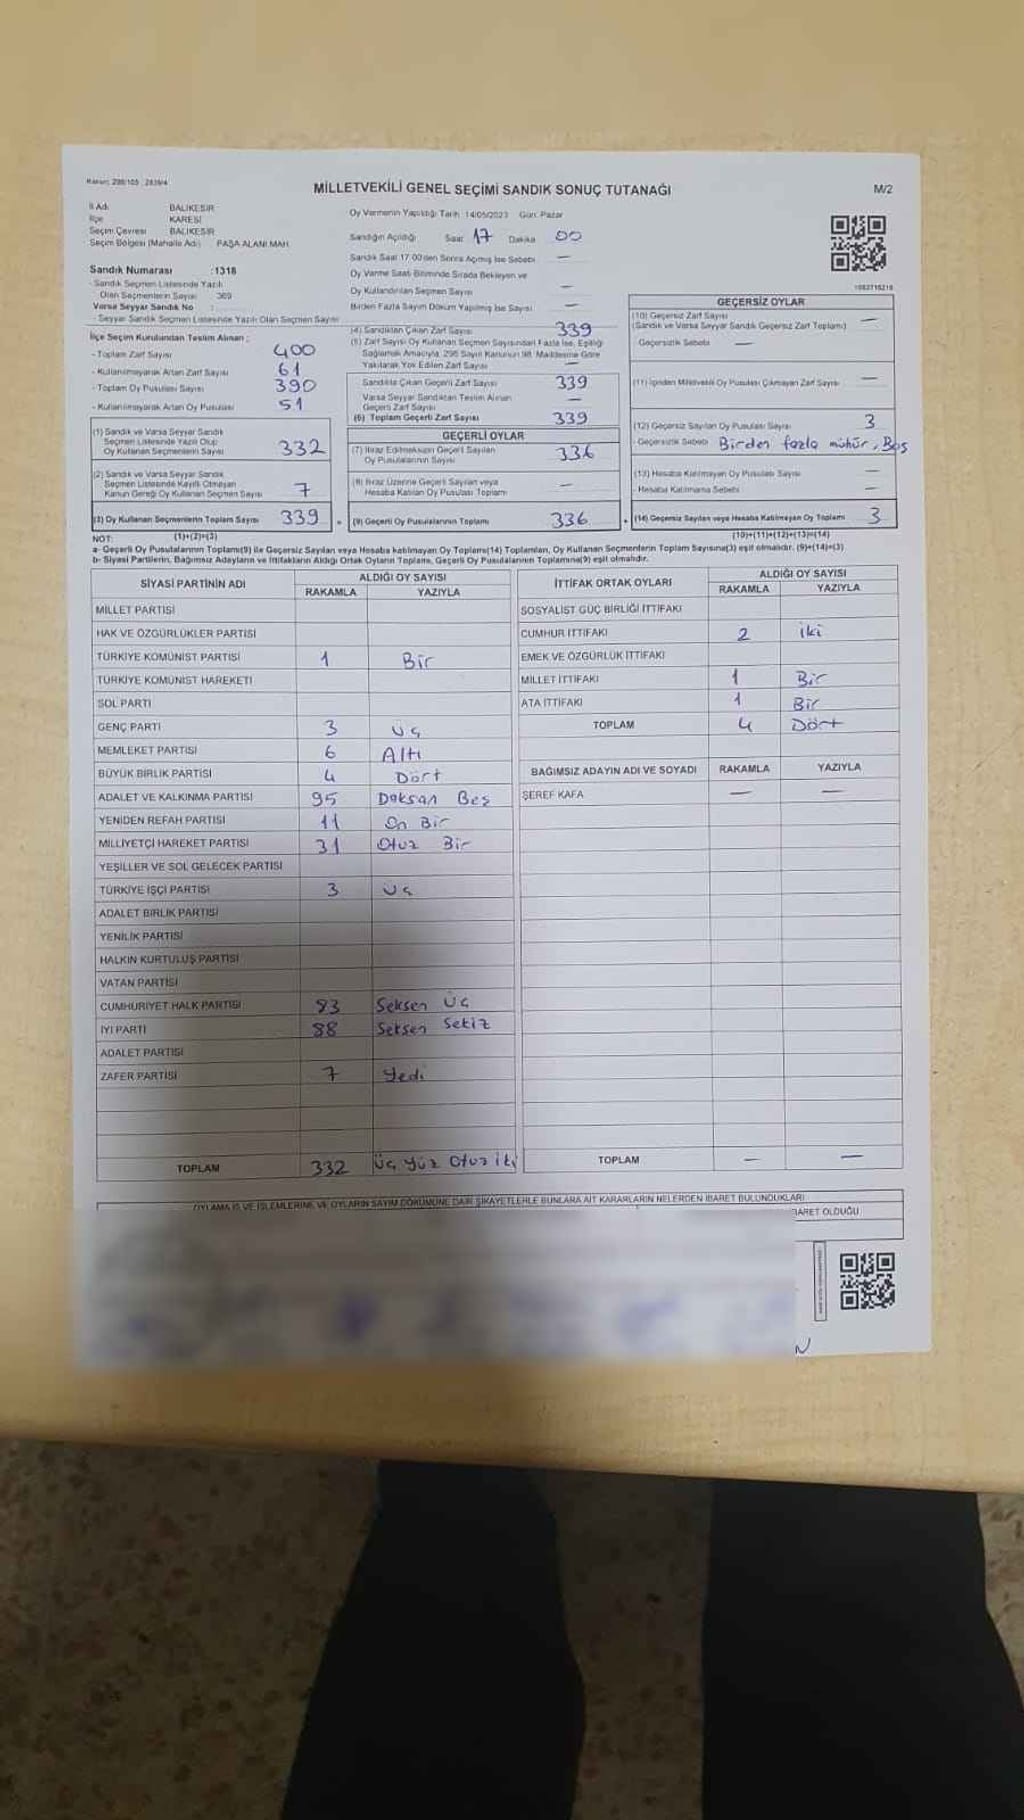 MİLLETVEKİLİ GENEL SEÇİMİ SANDIK SONUÇ TUTANAĞI
M/2
İl Adı BALIKESİR
İlçe KARESİ
Seçim Çevresi BALIKESİR
Seçim Bölgesi (Mahalle Adı) PAŞA ALANI MAH.
Sandık Numarası :1318
- Sandık Seçmen Listesinde Yazılı
Olan Seçmenlerin Sayısı : 369
Varsa Seyyar Sandık No :
- Seyyar Sandık Seçmen Listesinde Yazılı Olan Seçmen Sayısı
İlçe Seçim Kurulundan Teslim Alınan :
- Toplam Zarf Sayısı 400
- Kullanılmayarak Artan Zarf Sayısı 61
- Toplam Oy Pusulası Sayısı 390
- Kullanılmayarak Artan Oy Pusulası 51
(1) Sandık ve Varsa Seyyar Sandık
Seçmen Listesinde Yazılı Olup
Oy Kullanan Seçmenlerin Sayısı 332
(2) Sandık ve Varsa Seyyar Sandık
Seçmen Listesinde Kayıtlı Olmayan
Kanun Gereği Oy Kullanan Seçmen Sayısı 7
(3) Oy Kullanan Seçmenlerin Toplam Sayısı 339
(1)+(2)=(3)
Oy Vermenin Yapıldığı Tarih 14/05/2023 Gün: Pazar
Sandığın Açıldığı Saat 17 Dakika 00
Sandık Saat 17.00'den Sonra Açılmış İse Sebebi —
Oy Verme Saati Bitiminde Sırada Bekleyen ve
Oy Kullandırılan Seçmen Sayısı —
Birden Fazla Sayım Döküm Yapılmış İse Sayısı —
(4) Sandıktan Çıkan Zarf Sayısı 339
(5) Zarf Sayısı Oy Kullanan Seçmen Sayısından Fazla İse, Eşitliği
Sağlamak Amacıyla, 298 Sayılı Kanunun 98. Maddesine Göre
Yakılarak Yok Edilen Zarf Sayısı —
Sandıkta Çıkan Geçerli Zarf Sayısı 339
Varsa Seyyar Sandıktan Teslim Alınan
Geçerli Zarf Sayısı —
(6) Toplam Geçerli Zarf Sayısı 339
GEÇERLİ OYLAR
(7) İtiraz Edilmeksizin Geçerli Sayılan
Oy Pusulalarının Sayısı 336
(8) İtiraz Üzerine Geçerli Sayılan veya
Hesaba Katılan Oy Pusulası Toplamı —
(9) Geçerli Oy Pusulalarının Toplamı 336
GEÇERSİZ OYLAR
(10) Geçersiz Zarf Sayısı
(Sandık ve Varsa Seyyar Sandık Geçersiz Zarf Toplamı) —
Geçersizlik Sebebi —
(11) İçinden Milletvekili Oy Pusulası Çıkmayan Zarf Sayısı —
(12) Geçersiz Sayılan Oy Pusulası Sayısı 3
- Geçersizlik Sebebi Birden fazla mühür, Boş
(13) Hesaba Katılmayan Oy Pusulası Sayısı —
- Hesaba Katılmama Sebebi —
(14) Geçersiz Sayılan veya Hesaba Katılmayan Oy Toplamı 3
(10)+(11)+(12)+(13)=(14)
NOT:
a- Geçerli Oy Pusulalarının Toplamı(9) ile Geçersiz Sayılan veya Hesaba katılmayan Oy Toplamı(14) Toplamları, Oy Kullanan Seçmenlerin Toplam Sayısına(3) eşit olmalıdır. (9)+(14)=(3)
b- Siyasi Partilerin, Bağımsız Adayların ve İttifakların Aldığı Ortak Oyların Toplamı, Geçerli Oy Pusulalarının Toplamına(9) eşit olmalıdır.
SİYASİ PARTİNİN ADI ALDIĞI OY SAYISI
RAKAMLA YAZIYLA
MİLLET PARTİSİ
HAK VE ÖZGÜRLÜKLER PARTİSİ
TÜRKİYE KOMÜNİST PARTİSİ 1 Bir
TÜRKİYE KOMÜNİST HAREKETİ
SOL PARTİ
GENÇ PARTİ 3 Üç
MEMLEKET PARTİSİ 6 Altı
BÜYÜK BİRLİK PARTİSİ 4 Dört
ADALET VE KALKINMA PARTİSİ 95 Doksan Beş
YENİDEN REFAH PARTİSİ 11 On Bir
MİLLİYETÇİ HAREKET PARTİSİ 31 Otuz Bir
YEŞİLLER VE SOL GELECEK PARTİSİ
TÜRKİYE İŞÇİ PARTİSİ 3 Üç
ADALET BİRLİK PARTİSİ
YENİLİK PARTİSİ
HALKIN KURTULUŞ PARTİSİ
VATAN PARTİSİ
CUMHURİYET HALK PARTİSİ 83 Seksen Üç
İYİ PARTİ 88 Seksen Sekiz
ADALET PARTİSİ
ZAFER PARTİSİ 7 Yedi
TOPLAM 332 Üç Yüz Otuz iki
İTTİFAK ORTAK OYLARI ALDIĞI OY SAYISI
RAKAMLA YAZIYLA
SOSYALİST GÜÇ BİRLİĞİ İTTİFAKI
CUMHUR İTTİFAKI 2 iki
EMEK VE ÖZGÜRLÜK İTTİFAKI
MİLLET İTTİFAKI 1 Bir
ATA İTTİFAKI 1 Bir
TOPLAM 4 Dört
BAĞIMSIZ ADAYIN ADI VE SOYADI RAKAMLA YAZIYLA
ŞEREF KAFA — —
TOPLAM — —
OYLAMA İŞ VE İŞLEMLERİNE VE OYLARIN SAYIM DÖKÜMÜNE DAİR ŞİKAYETLERLE BUNLARA AİT KARARLARIN NELERDEN İBARET BULUNDUKLARI
BARET OLDUĞU
N